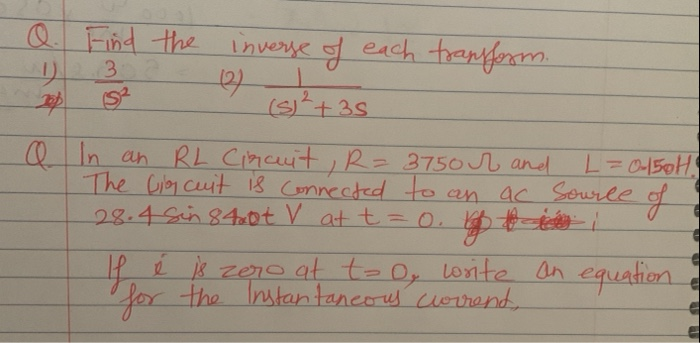 Q. Find the inverse of each transform.
1) 3/(s)² (2) 1/((s)²+3s)
Q In an RL Circuit, R = 3750 Ω and L = 0.150H.
The Circuit is connected to an ac source of
28.4 sin 840t V at t = 0.
If i is zero at t=0, write an equation
for the Instantaneous current.